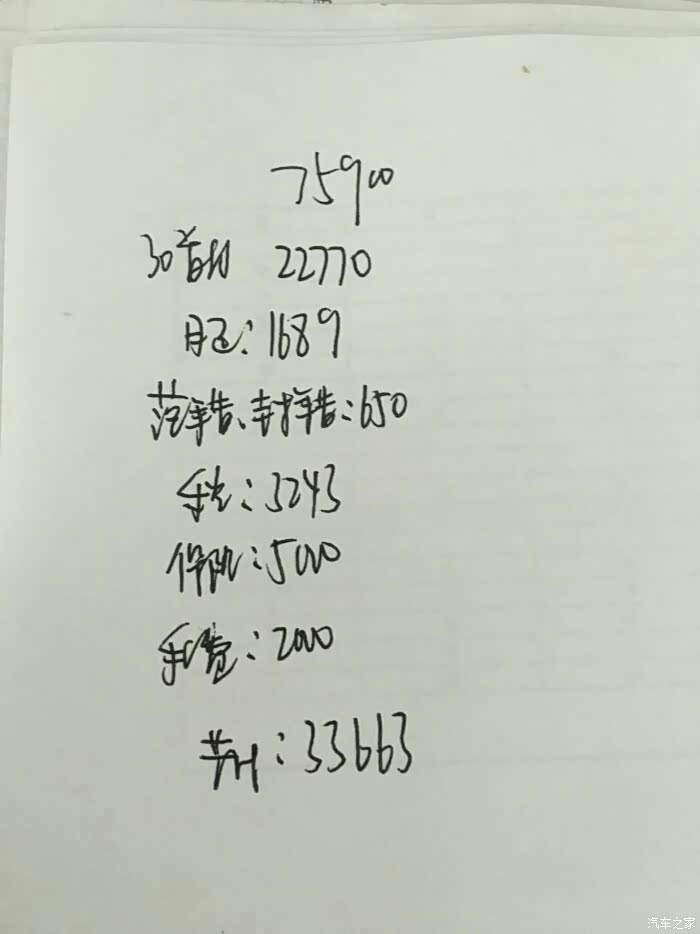 75900
30%首付 22770
月还:1689
650
:3243
保险:5000
手续费:2000
共计:33663
汽车之家